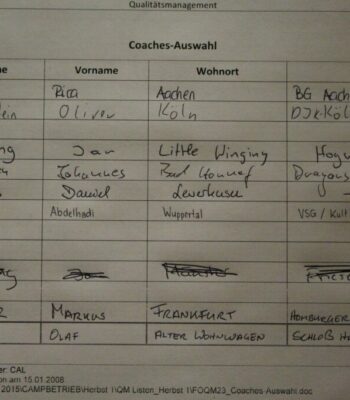 Qualitätsmanagement
Coaches-Auswahl
me Vorname Wohnort
Rica Aachen BG Aach
ein Oliver Köln DJK-Köl
ng Jan Little Winging Hogw
Johannes Bad Honnef Dragons
Daniel Leverkusen
Abdelhadi Wuppertal VSG / Kult
Markus Frankfurt Homburger
Olaf Alter Wohnwagen Schloß Ho
er: CAL
on am 15.01.2008
2015\CAMPBETRIEB\Herbst 1\QM Listen_Herbst 1\FOQM23_Coaches-Auswahl.doc